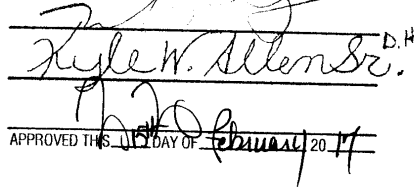 D.H
Kyle W. Allen Sr.
APPROVED THIS 15th DAY OF February 20 17